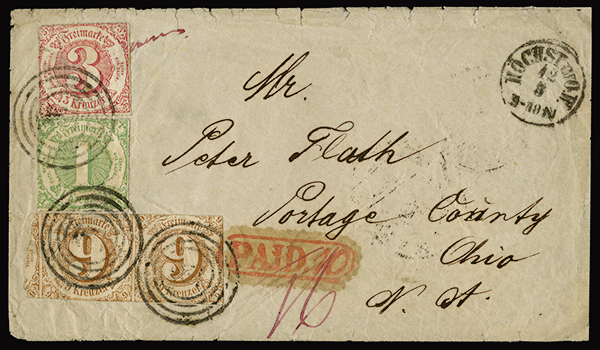 Freimarke
3
3 Kreuzer
Freimarke
1
Freimarke
9
9 Kreuzer
Freimarke
9
9 Kreuzer
HÖCHST
12
3
9-10 N
Mr.
Peter Flath
Portage County
Ohio
N. A.
PAID
16